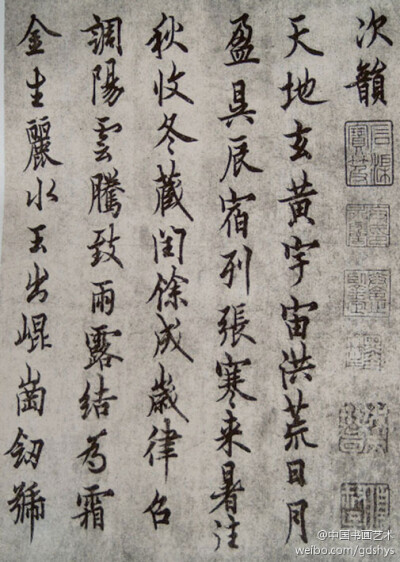 次韻
天地玄黃宇宙洪荒日月
盈昃辰宿列張寒来暑往
秋收冬藏閏餘成歲律召
調陽雲騰致雨露結為霜
金生麗水玉出崐崗劒號
@中国书画艺术
weibo.com/gdshys